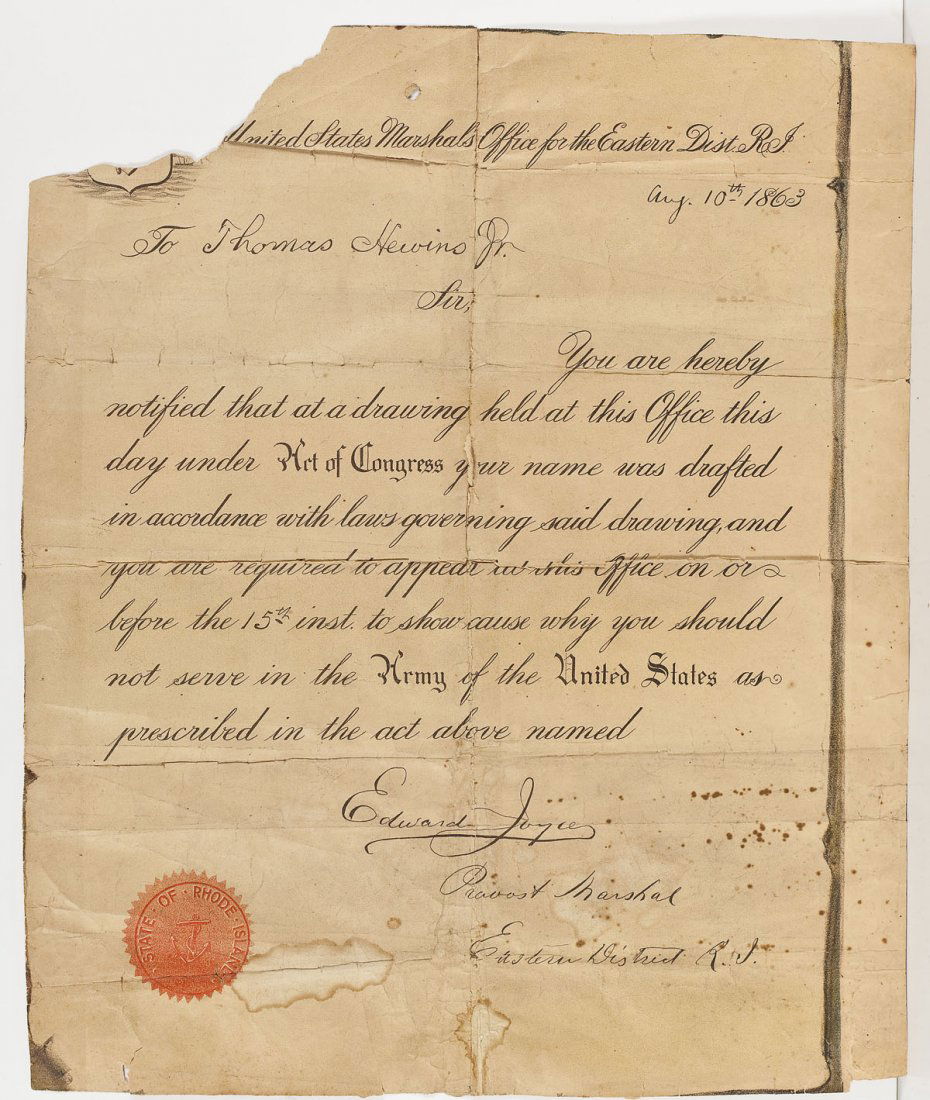 United States Marshal's Office for the Eastern Dist. R.I.
Aug. 10th 1863
To Thomas Hewins Jr.
Sir,
You are hereby
notified that at a drawing held at this Office this
day under Act of Congress your name was drafted
in accordance with laws governing said drawing, and
you are required to appear at this Office on or
before the 15th inst. to show cause why you should
not serve in the Army of the United States as
prescribed in the act above named
Edward Joyce
Provost Marshal
Eastern District R.I.
STATE · OF · RHODE · ISLAND